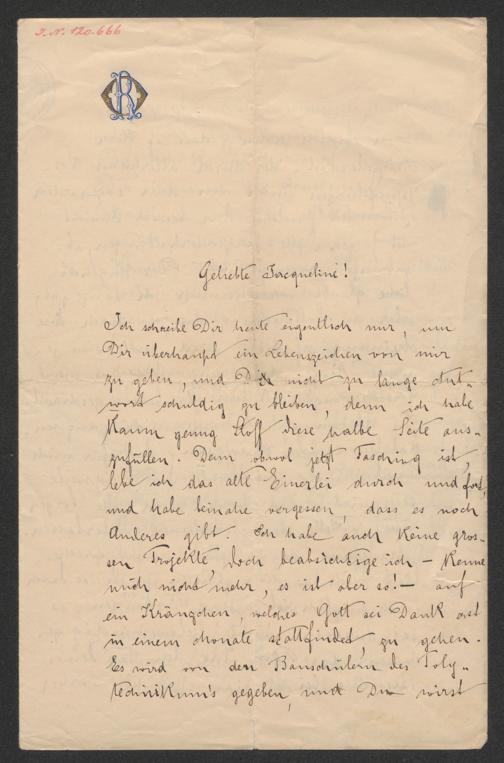 J. N. 120.666
R
Geliebte Jacqueline!
Ich schreibe Dir heute eigentlich nur, um
Dir überhaupt ein Lebenszeichen von mir
zu geben, und Dir nicht zu lange Ant-
wort schuldig zu bleiben, denn ich habe
kaum genug Stoff diese halbe Seite aus-
zufüllen. Denn obwol jetzt Fasching ist,
lebe ich das alte Einerlei durch und fort,
und habe beinahe vergessen, dass es noch
Anderes gibt. Ich habe auch keine gros-
sen Projekte, doch beabsichtige ich – kenne
mich nicht mehr, es ist aber so! – auf
ein Kränzchen, welches Gott sei Dank erst
in einem Monate stattfindet, zu gehen.
Es wird von den Bauschülern des Poly-
technikum's gegeben, und Du wirst